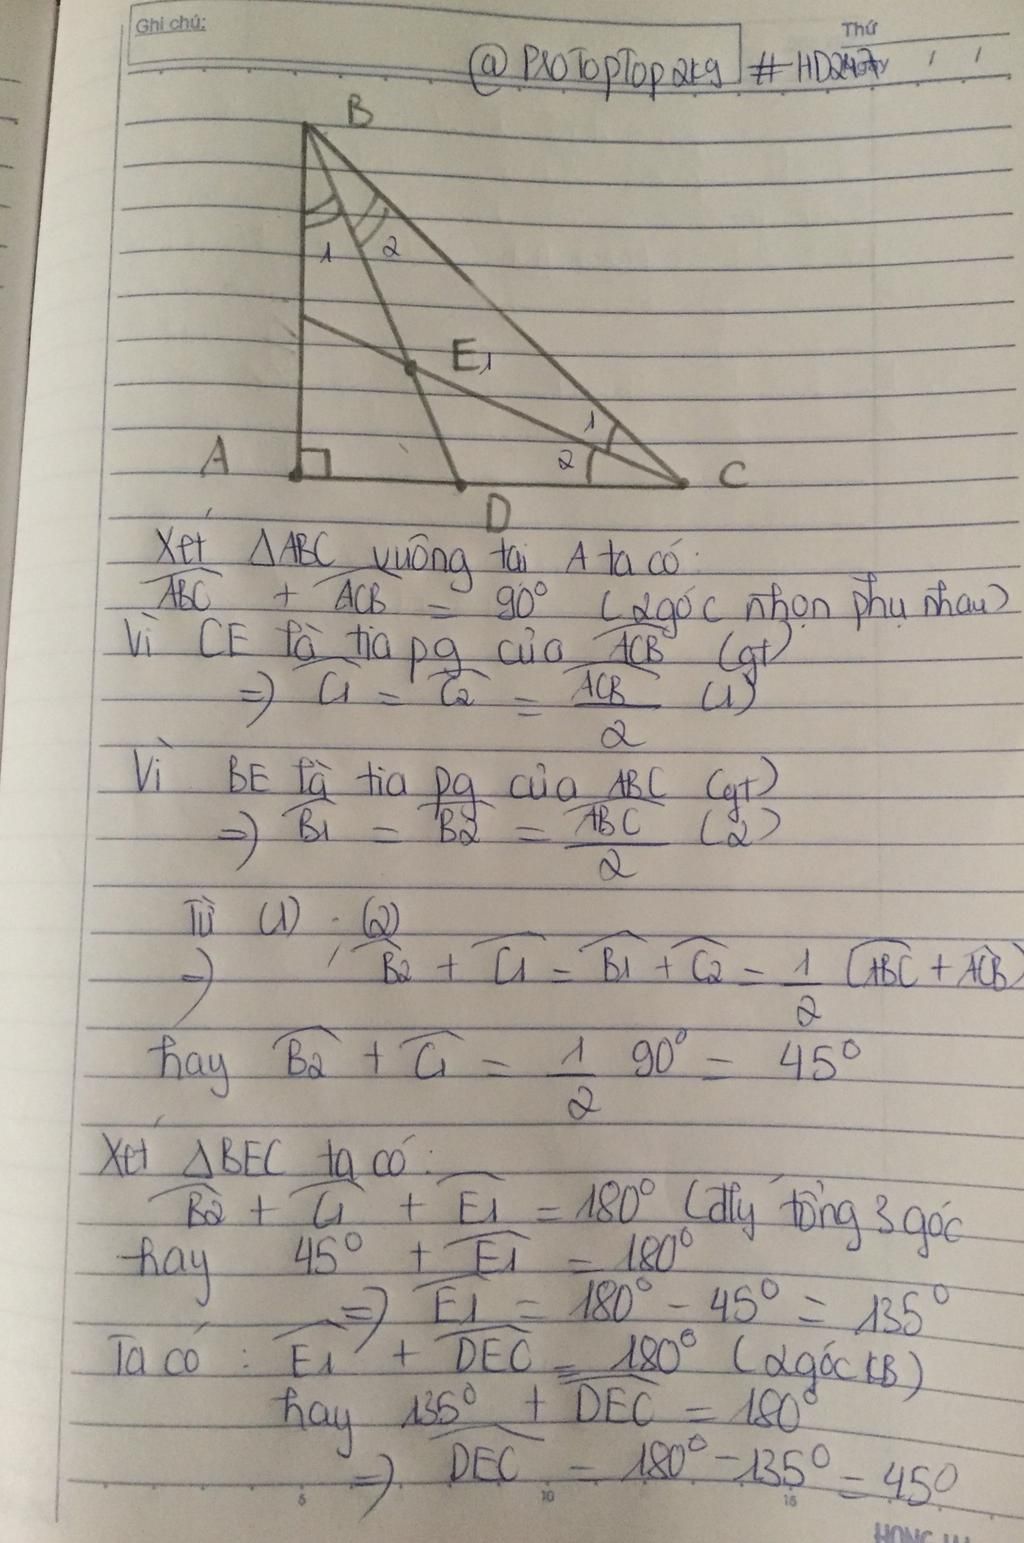 Ghi chú:
Thứ
@ProTopTop2k9 #HD247
B
1 2
E1
1
A 2 C
D
Xét ΔABC vuông tại A ta có:
ABC + ACB = 90° (2góc nhọn phụ nhau)
Vì CE là tia pg của ACB (gt)
=) C1 = C2 = ACB/2 (1)
Vì BE là tia pg của ABC (gt)
=) B1 = B2 = ABC/2 (2)
Từ (1) ; (2)
=) B2 + C1 = B1 + C2 = 1/2 (ABC + ACB)
hay B2 + C1 = 1/2 90° = 45°
Xét ΔBEC ta có:
B2 + C1 + E1 = 180° (đly tổng 3 góc
hay 45° + E1 = 180°
=) E1 = 180° - 45° = 135°
Ta có : E1 + DEC = 180° (2góc KB)
hay 135° + DEC = 180°
=) DEC = 180° - 135° = 45°
5 10 15